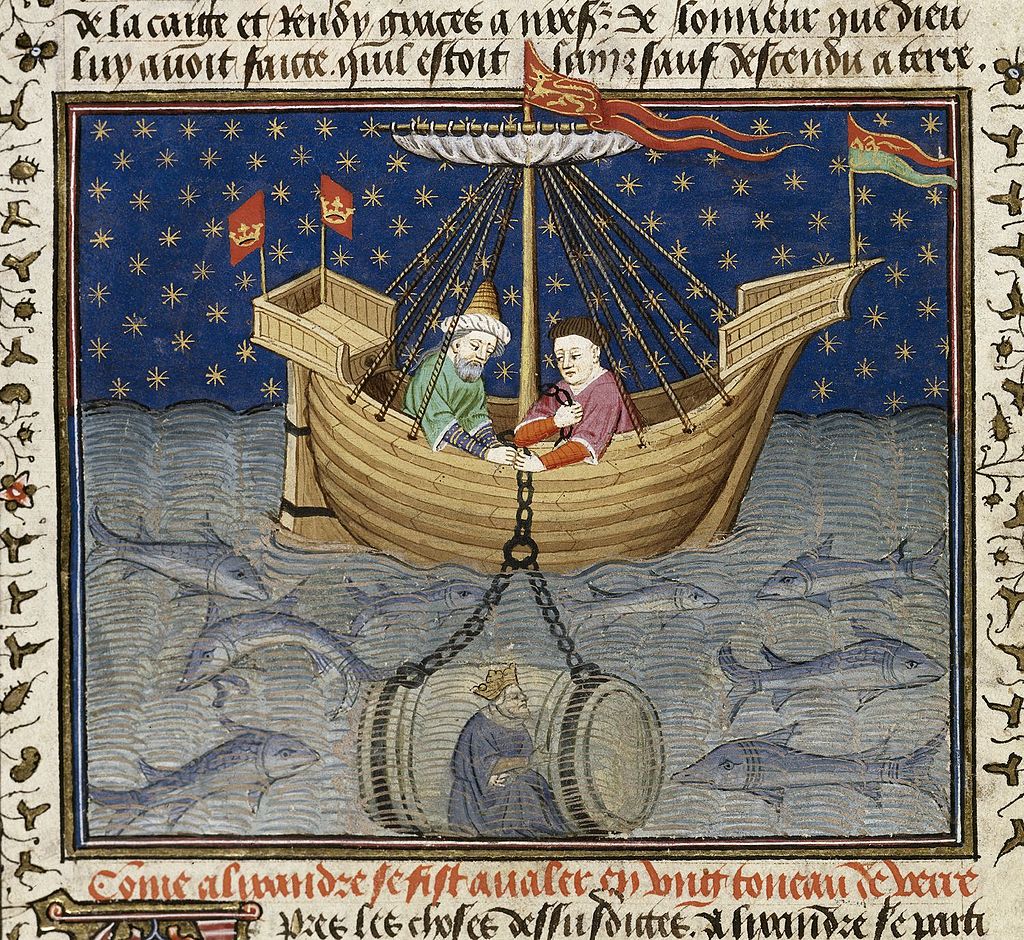 de la caige et Rendy graces a nresr de lonneur que dieu
luy auoit faicte. quil estoit sain z sauf descendu a terre.
Come alixandre se fist aualer en vng toneau de verre
Apres les choses dessusdictes. Alixandre se parti